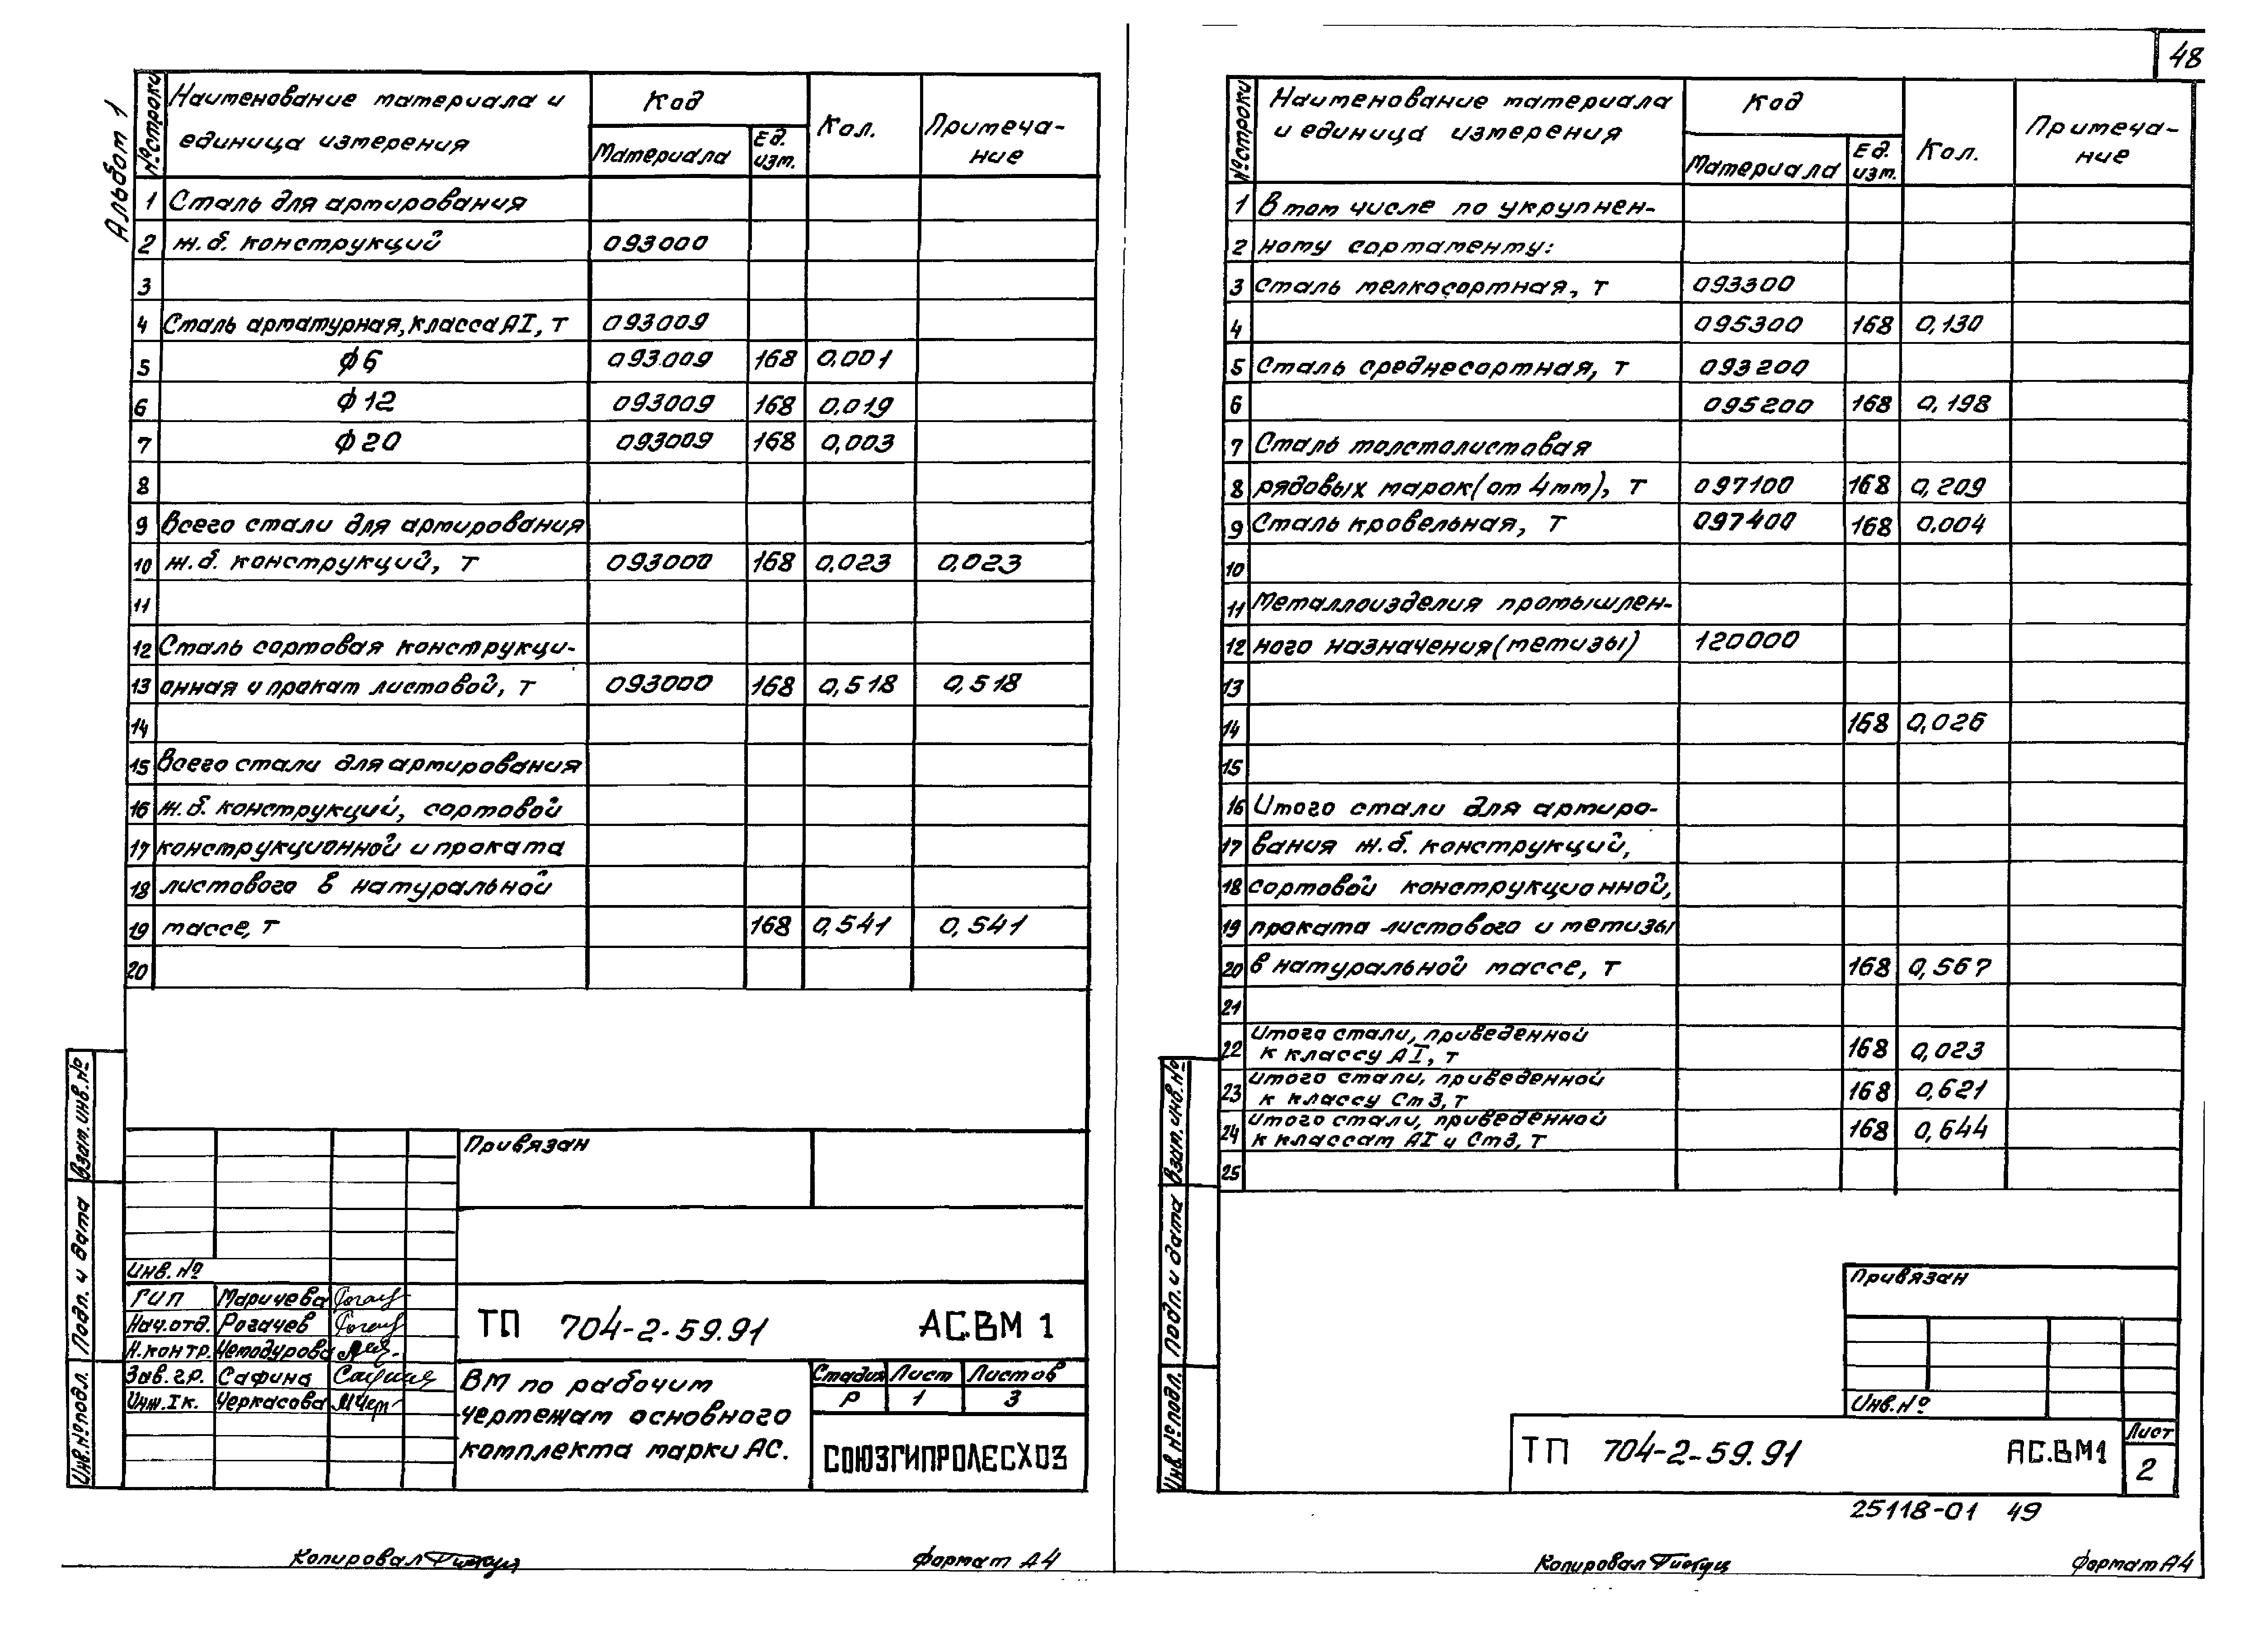 48
Альбом 1
№ строки
Наименование материала и
единица измерения
Код
Материала
Ед.
изм.
Кол.
Примеча-
ние
1 Сталь для армирования
2 ж.б. конструкций 093000
3
4 Сталь арматурная, класса АI, т 093009
5 ϕ6 093009 168 0,001
6 ϕ12 093009 168 0,019
7 ϕ20 093009 168 0,003
8
9 Всего стали для армирования
10 ж.б. конструкций, т 093000 168 0,023 0,023
11
12 Сталь сортовая конструкци-
13 онная и прокат листовой, т 093000 168 0,518 0,518
14
15 Всего стали для армирования
16 ж.б. конструкций, сортовой
17 конструкционной и проката
18 листового в натуральной
19 массе, т 168 0,541 0,541
20
Взам. инв. №
Подп. и дата
Инв. № подл.
Привязан
Инв. №
ГИП Маричева
Нач. отд. Рогачев
Н. контр. Чемодурова
Зав. гр. Сафина
Инж. Iк. Черкасова
ТП 704-2-59.91 АС.ВМ 1
ВМ по рабочим
чертежам основного
комплекта марки АС.
Стадия Лист Листов
Р 1 3
СОЮЗГИПРОЛЕСХОЗ
Копировал
Формат А4
№ строки
Наименование материала
и единица измерения
Код
Материала
Ед.
изм.
Кол.
Примеча-
ние
1 В том числе по укрупнен-
2 ному сортаменту:
3 Сталь мелкосортная, т 093300
4 095300 168 0,130
5 Сталь среднесортная, т 093200
6 095200 168 0,198
7 Сталь толстолистовая
8 рядовых марок (от 4мм), т 097100 168 0,209
9 Сталь кровельная, т 097400 168 0,004
10
11 Металлоизделия промышлен-
12 ного назначения (метизы) 120000
13
14 168 0,026
15
16 Итого стали для армиро-
17 вания ж.б. конструкций,
18 сортовой конструкционной,
19 проката листового и метизы
20 в натуральной массе, т 168 0,567
21
22 Итого стали, приведенной
к классу АI, т 168 0,023
23 Итого стали, приведенной
к классу Ст3, т 168 0,621
24 Итого стали, приведенной
к классам АI и Ст3, т 168 0,644
25
Взам. инв. №
Подп. и дата
Инв. № подл.
Привязан
Инв. №
ТП 704-2-59.91 АС.ВМ1
Лист
2
25118-01 49
Копировал
Формат А4